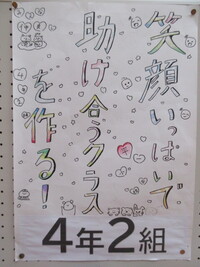 笑顔いっぱいで
助け合うクラス
を作る！
4年2組